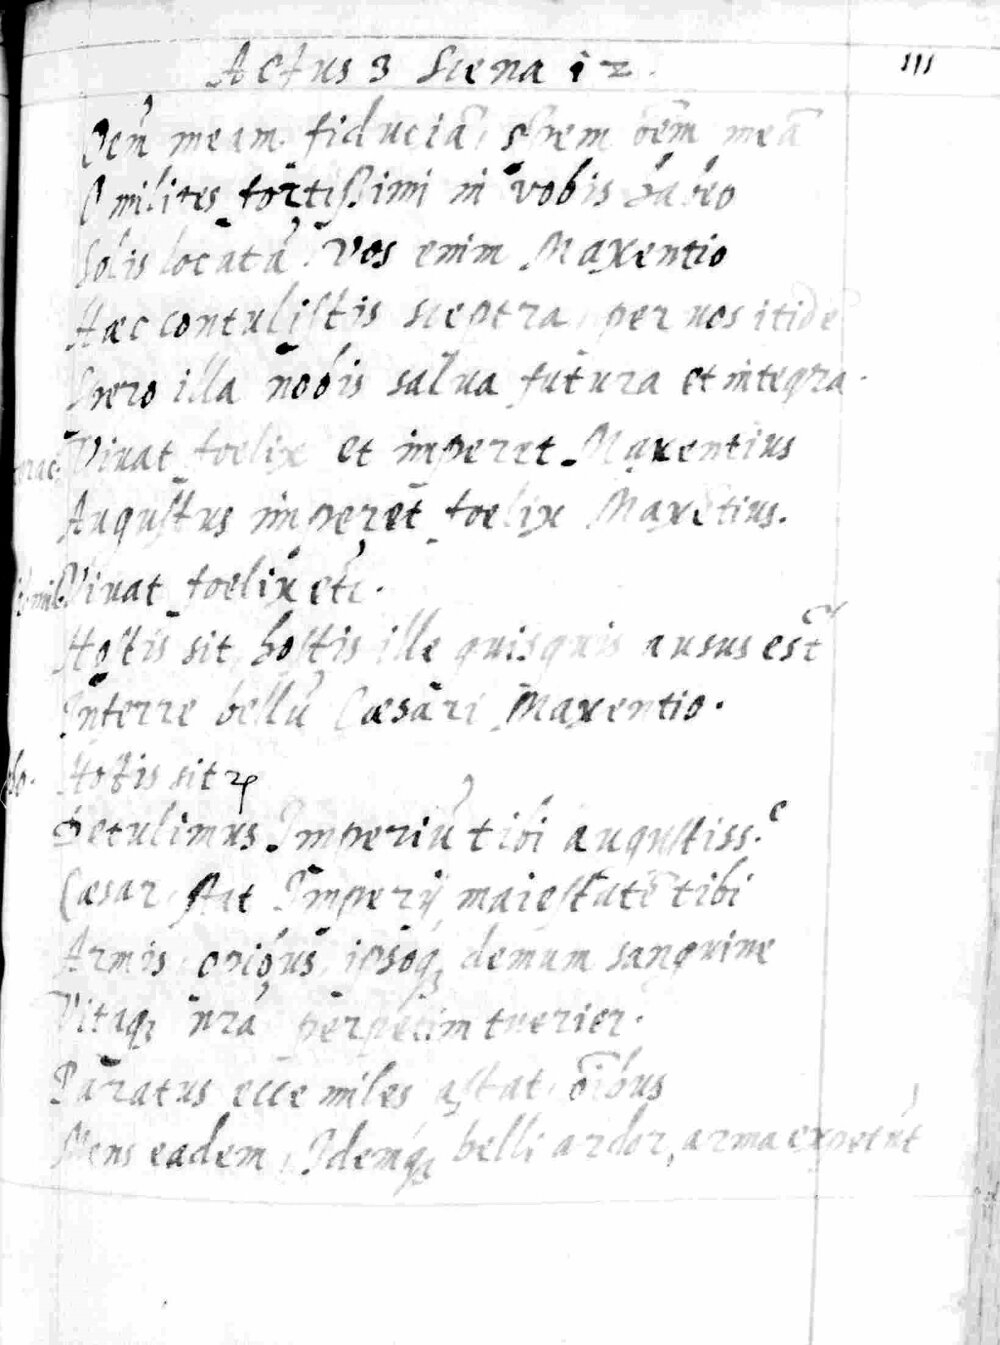 Actus 3 Scena i2. 111
Oem̄ meam fiduciā, spem oēm meā
O milites fortissimi in vobis habeo
Solis locatā. Vos enim Maxentio
Hæc contulistis sceptra, per uos itidē
Spero illa nobis salua futura et integra.
Viuat foelix et imperet Maxentius
Augustus imperet foelix Maxētius.
Viuat foelix etc.
Hostis sit, hostis ille quisquis ausus est
Inferre bellū Cæsari Maxentio.
Hostis sit
Detulimus Imperiū tibi augustiss.e
Cæsar, stat Imperij maiestatē tibi
Armis, opibus, ipsoq; demum sanguine
Vitaq; nrā perpetim tuerier.
Paratus ecce miles astat, oībus
Mens eadem, Idemq; belli ardor, arma expetūt